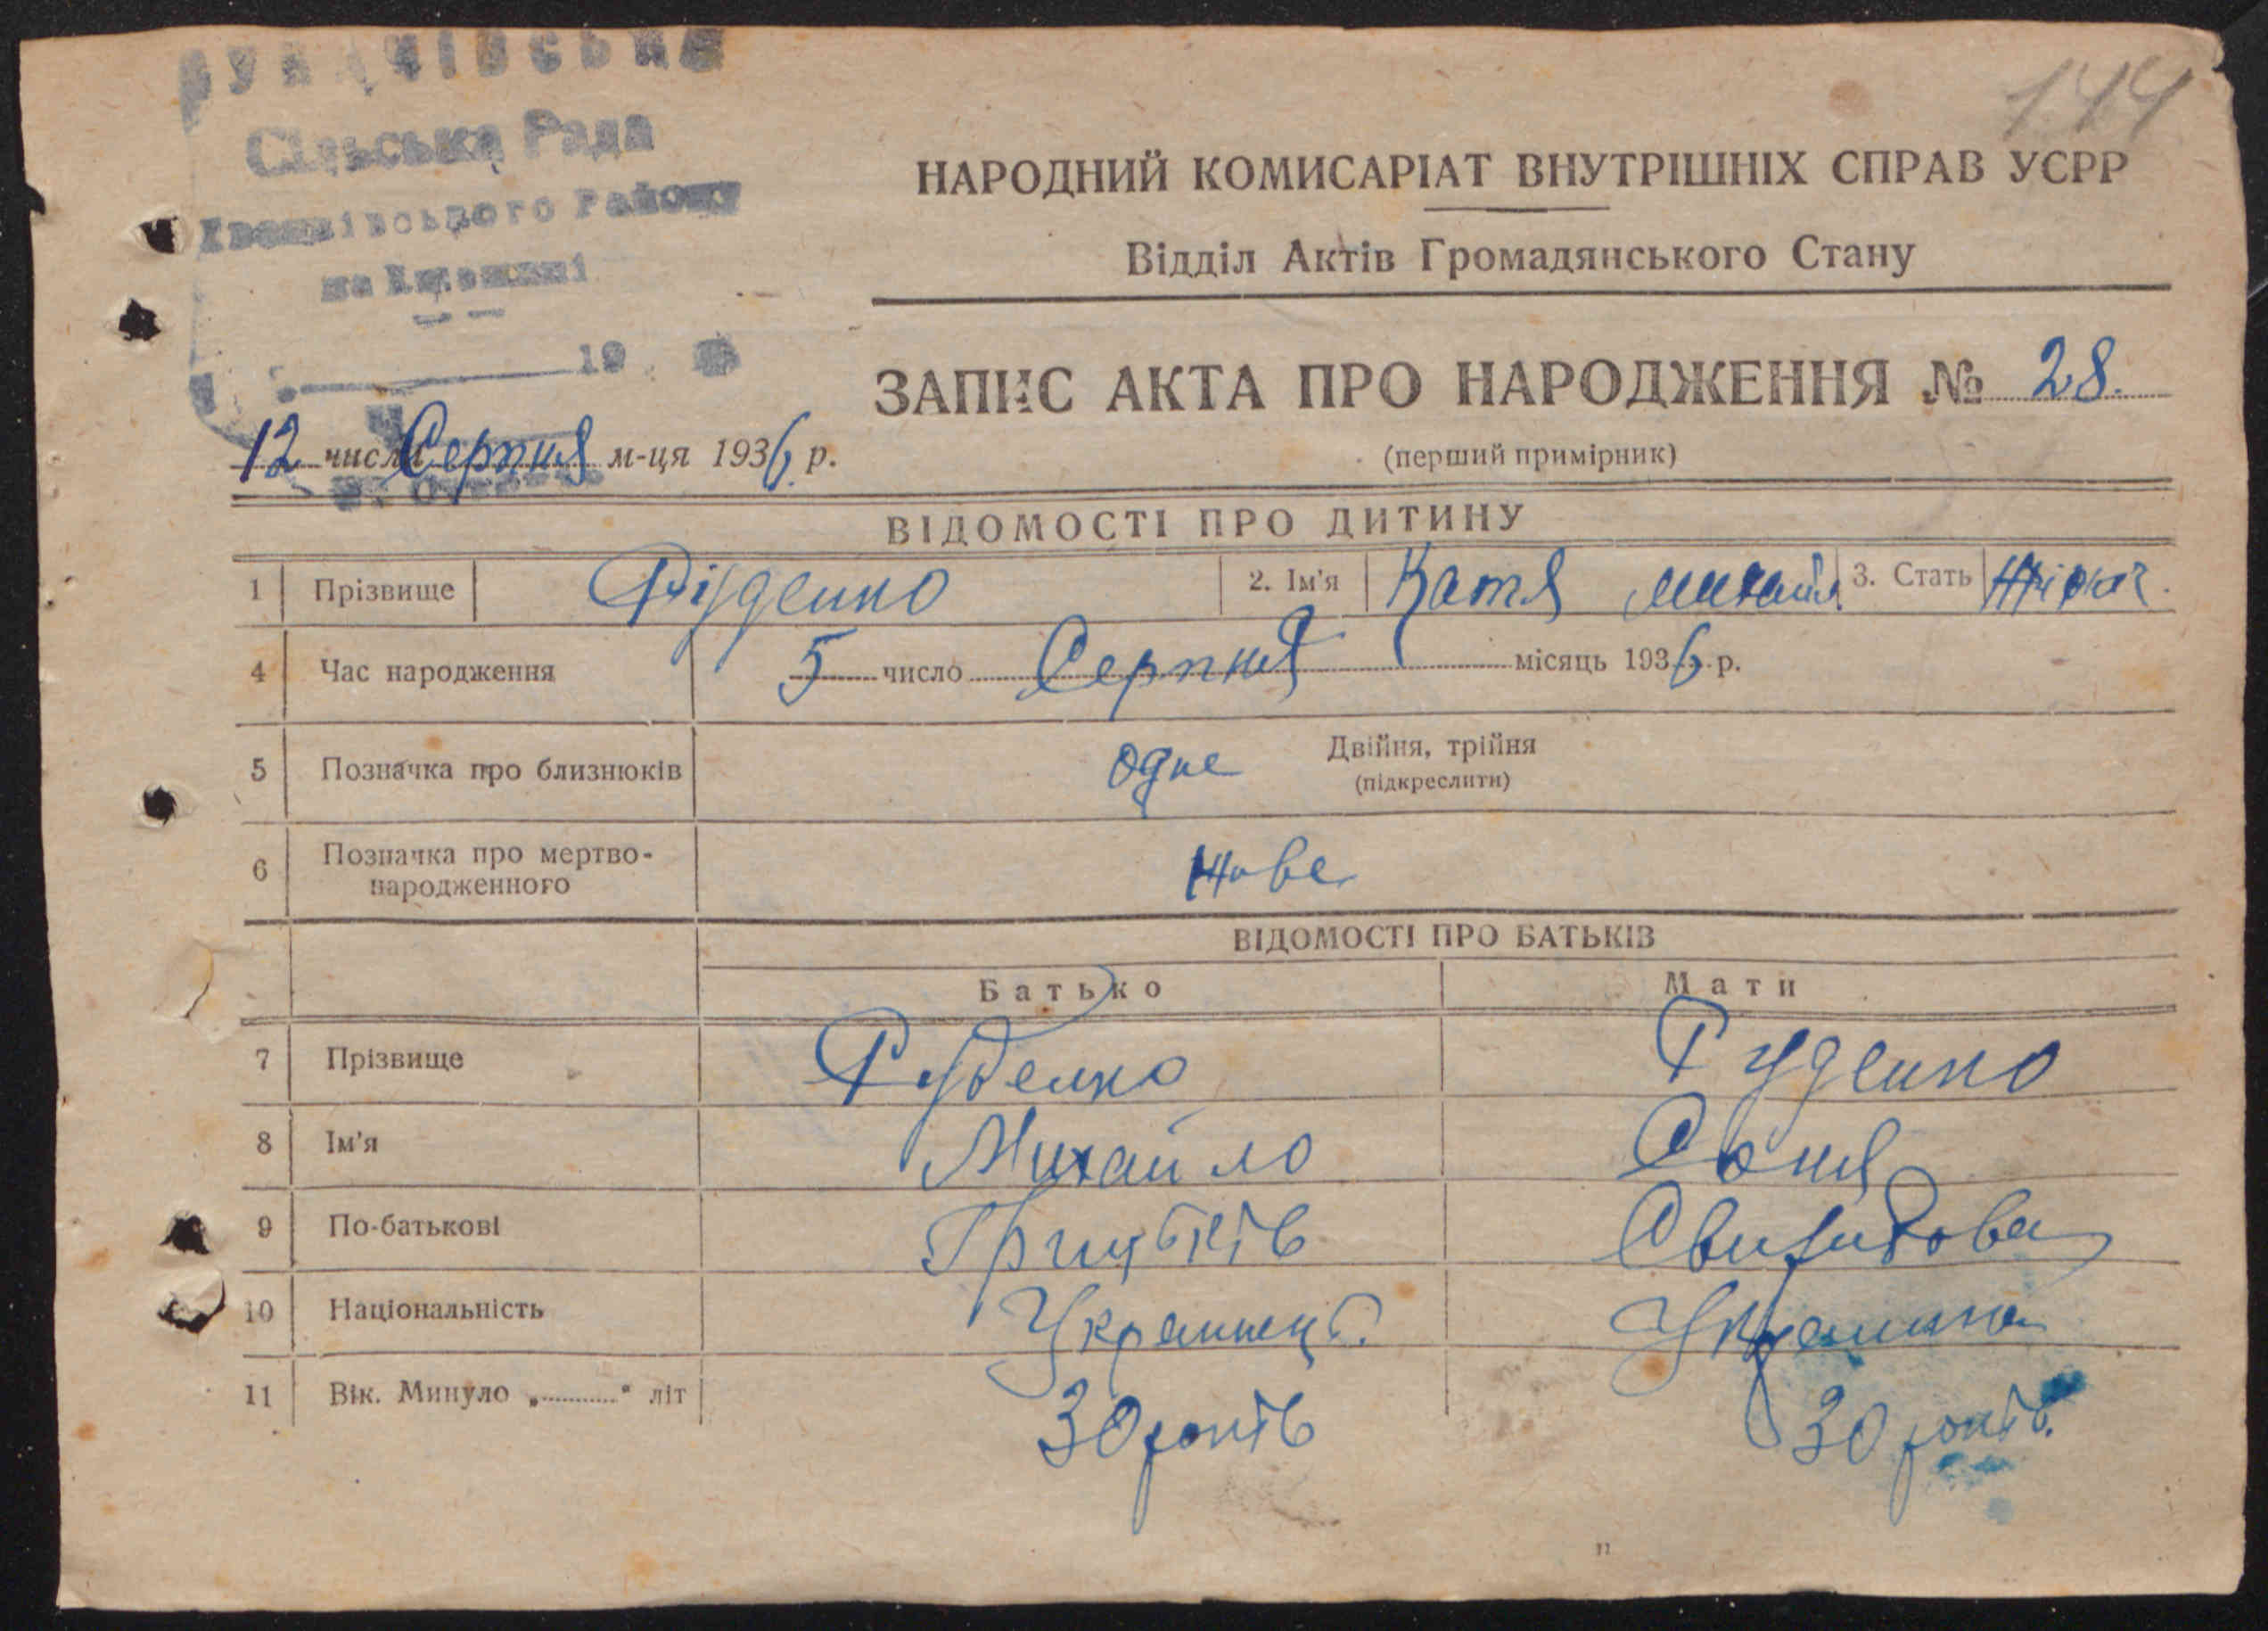 Сільська Рада
Району
19
144
НАРОДНИЙ КОМИСАРІАТ ВНУТРІШНІХ СПРАВ УСРР
Відділ Актів Громадянського Стану
ЗАПИС АКТА ПРО НАРОДЖЕННЯ № 28.
(перший примірник)
12 числа Серпня м-ця 1936 р.
ВІДОМОСТІ ПРО ДИТИНУ
1 Прізвище Руденко 2. Ім'я Катя 3. Стать
4 Час народження 5 число Серпня місяць 1936 р.
5 Позначка про близнюків одне Двійня, трійня
(підкреслити)
6 Позначка про мертво-
народженного живе
ВІДОМОСТІ ПРО БАТЬКІВ
Батько Мати
7 Прізвище Руденко Руденко
8 Ім'я Михайло Соня
9 По-батькові
10 Національність
11 Вік. Минуло „ " літ 30 років 30 років.